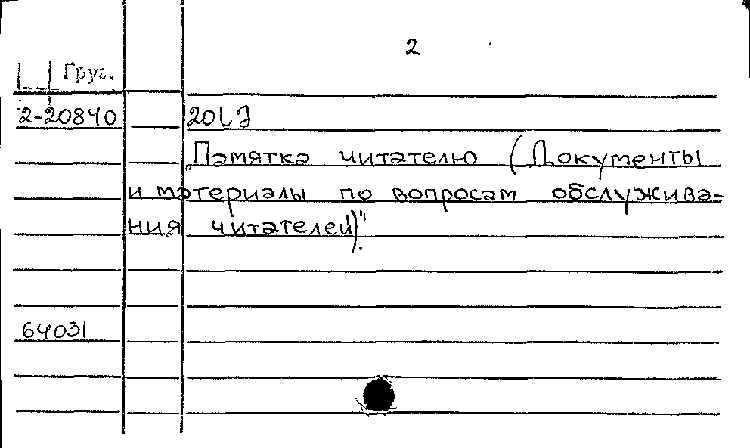 2
Груз.
2-20840
„Памятка читателю (Документы
и материалы по вопросам обслужива=
ния читателей)."
64031